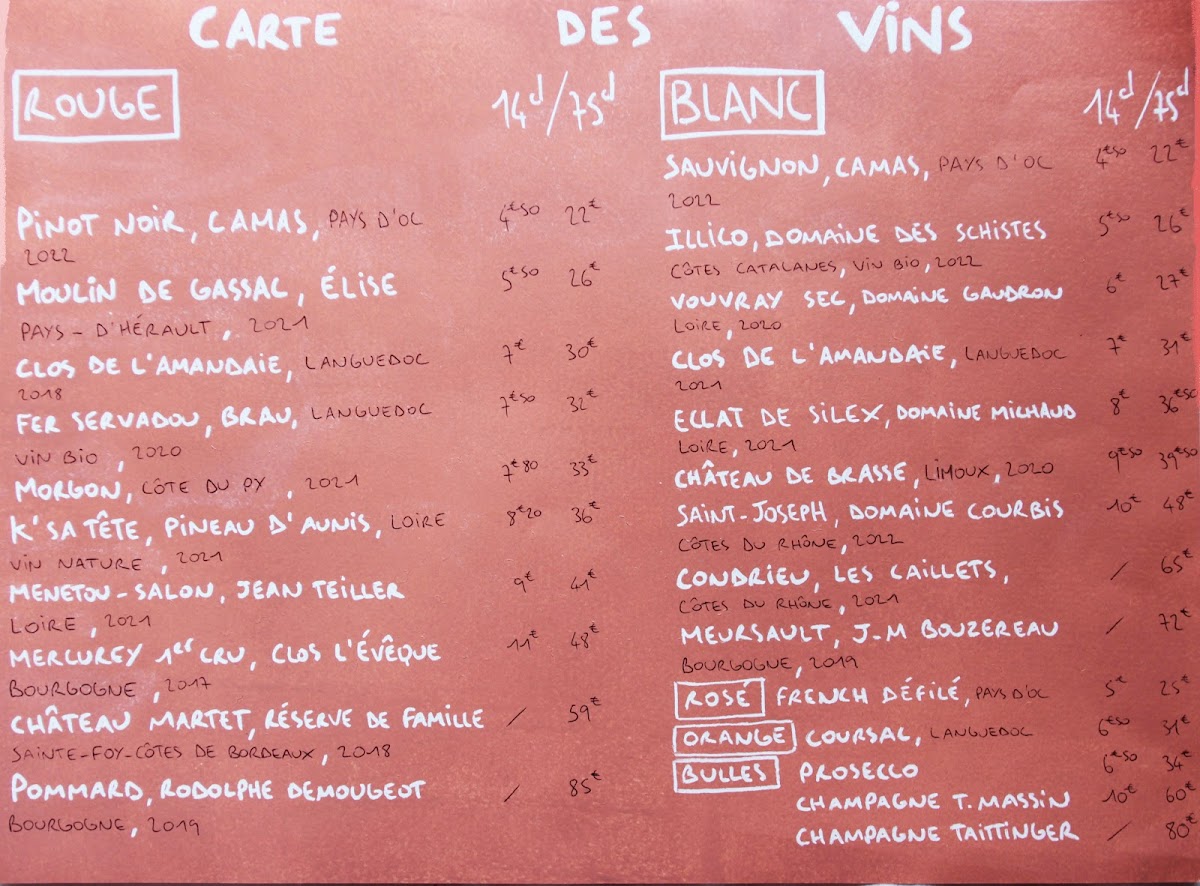 CARTE DES VINS
ROUGE 14d/75d
PINOT NOIR, CAMAS, PAYS D'OC 4€50 22€
2022
MOULIN DE GASSAC, ÉLISE 5€50 26€
PAYS - D'HÉRAULT, 2021
CLOS DE L'AMANDAIE, LANGUEDOC 7€ 30€
2018
FER SERVADOU, BRAU, LANGUEDOC 7€50 32€
VIN BIO, 2020
MORGON, CÔTE DU PY, 2021 7€80 33€
K'SA TÊTE, PINEAU D'AUNIS, LOIRE 8€20 36€
VIN NATURE, 2021
MENETOU-SALON, JEAN TEILLER 9€ 41€
LOIRE, 2021
MERCUREY 1er CRU, CLOS L'ÉVÊQUE 11€ 48€
BOURGOGNE, 2017
CHÂTEAU MARTET, RÉSERVE DE FAMILLE / 59€
SAINTE-FOY-CÔTES DE BORDEAUX, 2018
POMMARD, RODOLPHE DEMOUGEOT / 85€
BOURGOGNE, 2019
BLANC 14d/75d
SAUVIGNON, CAMAS, PAYS D'OC 4€50 22€
2022
ILLICO, DOMAINE DES SCHISTES 5€50 26€
CÔTES CATALANES, VIN BIO, 2022
VOUVRAY SEC, DOMAINE GAUDRON 6€ 27€
LOIRE, 2020
CLOS DE L'AMANDAIE, LANGUEDOC 7€ 31€
2021
ECLAT DE SILEX, DOMAINE MICHAUD 8€ 36€50
LOIRE, 2021
CHÂTEAU DE BRASSE, LIMOUX, 2020 9€50 39€50
SAINT-JOSEPH, DOMAINE COURBIS 10€ 48€
CÔTES DU RHÔNE, 2022
CONDRIEU, LES CAILLETS, / 65€
CÔTES DU RHÔNE, 2021
MEURSAULT, J-M BOUZEREAU / 72€
BOURGOGNE, 2019
ROSÉ FRENCH DÉFILÉ, PAYS D'OC 5€ 25€
ORANGE COURSAC, LANGUEDOC 6€50 31€
BULLES PROSECCO 6€50 34€
CHAMPAGNE T. MASSIN 10€ 60€
CHAMPAGNE TAITTINGER / 80€